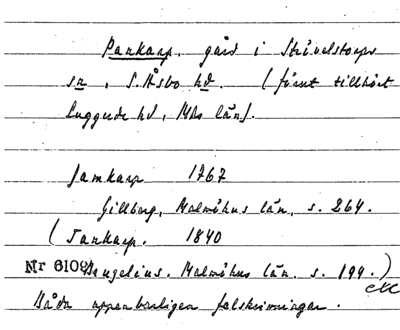 Pankarp. gård i Strövelstorps
sn, S. Åsbo hd. (förut tillhört
Luggude hd, Mhs län).
Jamkarp 1767
Gillberg, Malmöhus län, s. 264.
(Tankarp. 1840
Nr 6109 Tengelius. Malmöhus län. s. 199.)
Båda uppenbarligen felskrivningar.